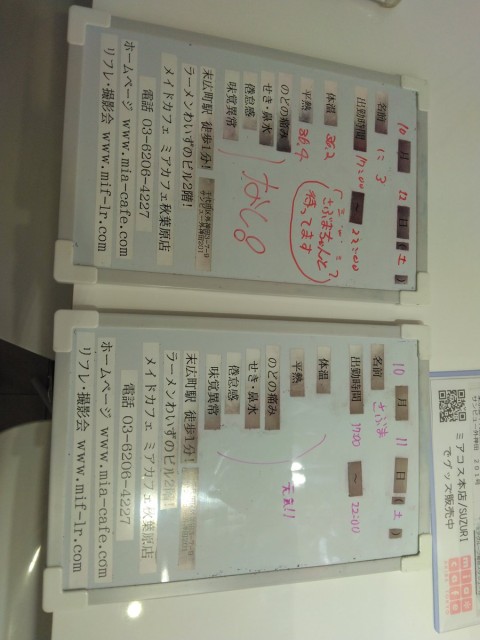 10月 12日(土)
名前 にこ
出勤時間 17:00 ～ 22:00
体温 36.2
平熱 36.4
のどの痛み
せき・鼻水
倦怠感
味覚異常
なし。
さぶまちゃんと
待ってます
末広町駅 徒歩1分!
ラーメンわいずのビル2階!
メイドカフェ ミアカフェ秋葉原店
電話 03-6206-4227
ホームページ www.mia-cafe.com
リフレ・撮影会 www.mif-lr.com
10月 11日(土)
名前 さぶま
出勤時間 17:00 ～ 22:00
体温
平熱
のどの痛み
せき・鼻水
倦怠感
味覚異常
元気!!
末広町駅 徒歩1分!
ラーメンわいずのビル2階!
メイドカフェ ミアカフェ秋葉原店
電話 03-6206-4227
ホームページ www.mia-cafe.com
リフレ・撮影会 www.mif-lr.com
ミアコス本店/SUZURI
でグッズ販売中